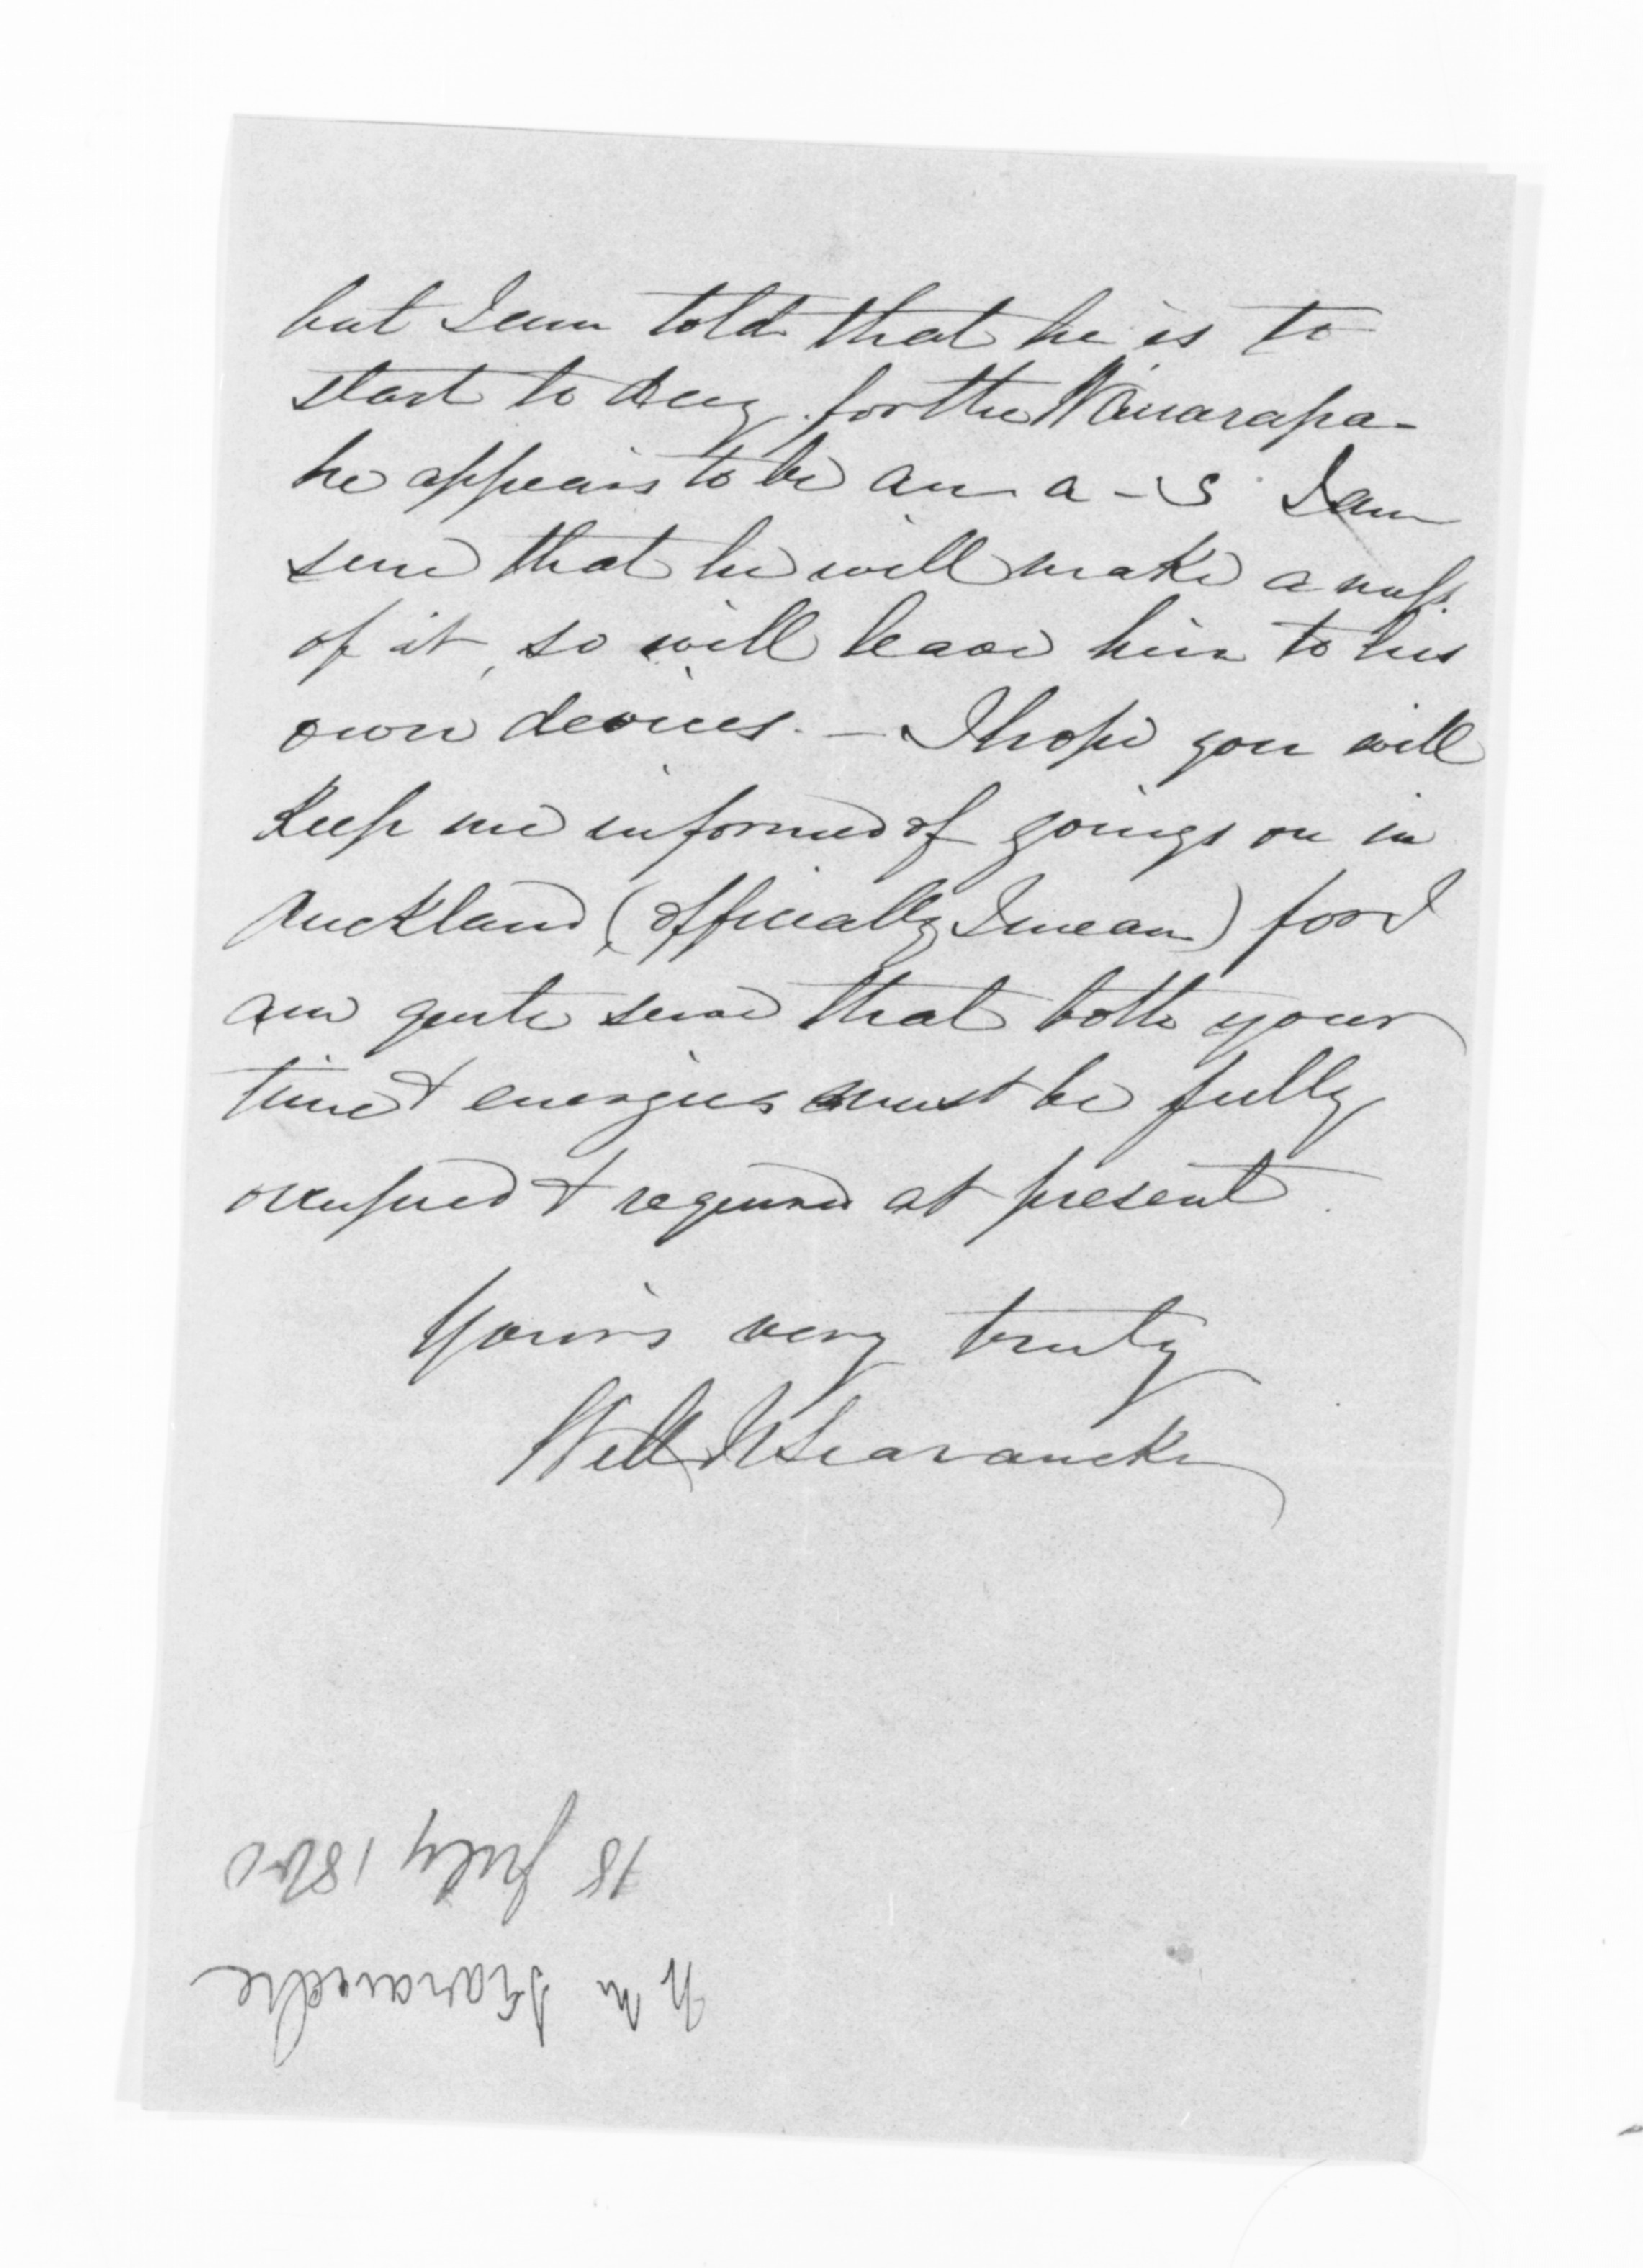 but I am told that he is to
start to day for the Wairarapa -
he appears to be an a - s I am
sure that he will make a mess
of it, so will leave him to his
own devices. - I hope you will
keep me informed of goings on in
Auckland (officially I mean) for I
am quite sure that both your
time & energies must be fully
occupied & required at present.
Yours very truly
Will N Searancke
18 July 1860
W N Searancke